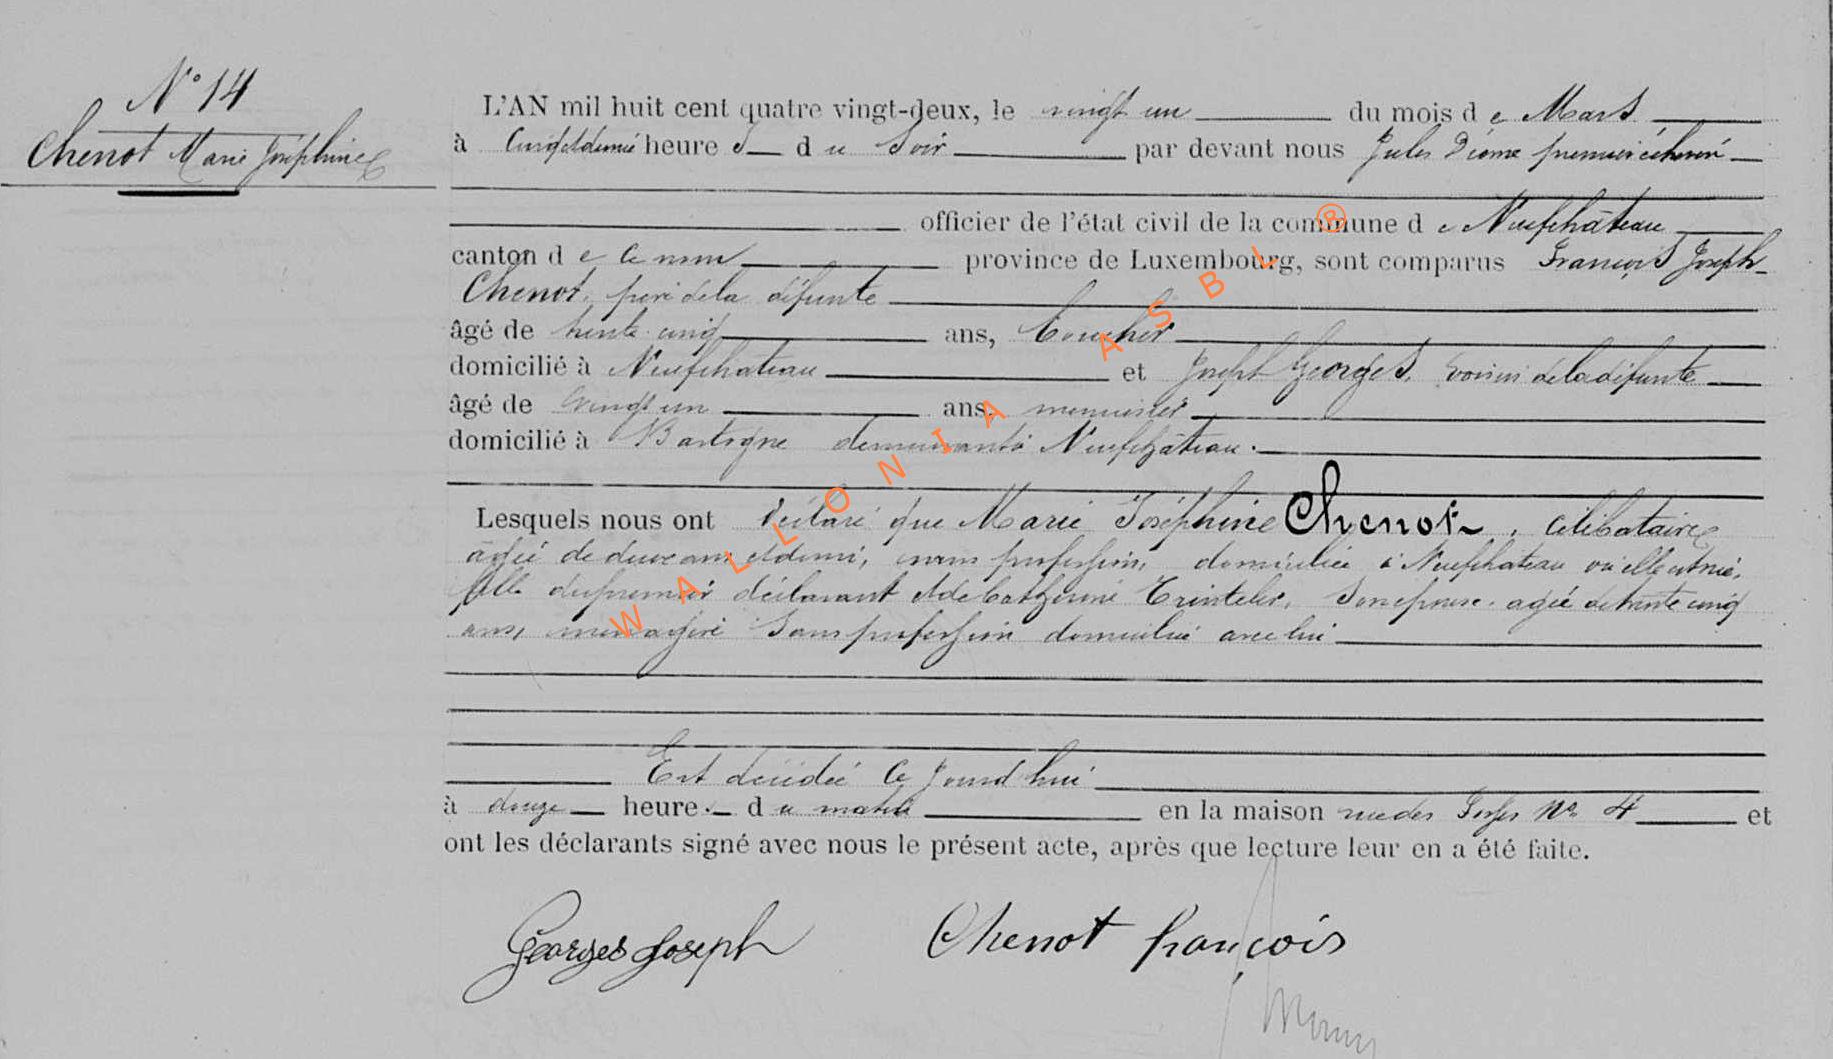 N° 14
Chenot Marie Joséphine
L'AN mil huit cent quatre vingt-deux, le vingt un du mois de Mars
à Cinq et demie heures du Soir par devant nous Jules premier échevin
officier de l'état civil de la commune de Neufchâteau
canton de ce nom province de Luxembourg, sont comparus François Joseph
Chenot, père de la défunte
âgé de trente cinq ans, boucher
domicilié à Neufchateau et Joseph Georges, voisin de la défunte
âgé de vingt un ans, menuisier
domicilié à Bastogne demeurant à Neufchâteau.
Lesquels nous ont déclaré que Marie Joséphine Chenot, célibataire
âgée de deux ans et demi, sans profession, domiciliée à Neufchateau où elle est née,
fille du premier déclarant et de Catherine Trinteler, son épouse, agée de trente cinq
ans, ménagère sans profession domiciliée avec lui
Est décédée Ce jourd'hui
à douze heures du matin en la maison rue des No 4 et
ont les déclarants signé avec nous le présent acte, après que lecture leur en a été faite.
Georges Joseph Chenot françois
WALLONIA ASBL ®